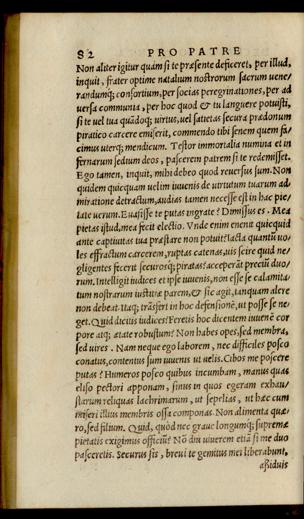 82 PRO PATRE
Non aliter igitur quàm si te præsente deficeret, per illud,
inquit, frater optime natalium nostrorum sacrum uene/
randumq; consortium, per socias peregrinationes, per ad
uersa communia, per hoc quod & tu languere potuisti,
si te uel tua quãdoq; uirtus, uel satietas secura prædonum
piratico carcere emiserit, commendo tibi senem quem fa/
cimus uterq; mendicum. Testor immortalia numina et in
fernarum sedium deos, pascerem patrem si te redemisset.
Ego tamen, inquit, mihi debeo quod reuersus sum. Non
quidem quicquam uelim iuuenis de uirtutum tuarum ad/
miratione detractum, audias tamen necesse est in hac pie/
tate uerum. Euasisse te putas ingrate? Dimissus es. Mea
pietas istud, mea fecit electio. Vnde enim euenit quicquid
ante captiuitas tua præstare non potuit? Iacta quantũ uo/
les effractum carcerem, ruptas catenas, uis scire quid ne/
gligentes fecerit securosq; piratas? acceperãt preciũ duo/
rum. Intelligit iudices et ipse iuuenis, non esse se calamita/
tum nostrarum iustitiæ parem, & sic agit, tanquam alere
non debeat. Itaq; trãsfert in hoc defensionẽ, ut posse se ne/
get. Quid dicitis iudices? Feretis hoc dicentem iuuenẽ cor
pore atq; ætate robustum? Non habes opes, sed membra,
sed uires. Nam neque ego laborem, nec difficiles posco
conatus, contentus sum uiuenis ut uelis. Cibos me poscere
putas? Humeros posco quibus incumbam, manus quas
eliso pectori apponam, sinus in quos egeram exhau/
starum reliquas lachrimarum, ut sepelias, ut hæc cum
miseri illius membris ossa componas. Non alimenta quæ/
ro, sed filium. Quid, quòd nec graue longumq; supremæ
pietatis exigimus officiũ? Nõ diu uiuerem etiã si me duo
pasceretis. Securus sis, breui te gemitus mei liberabunt,
aßiduis